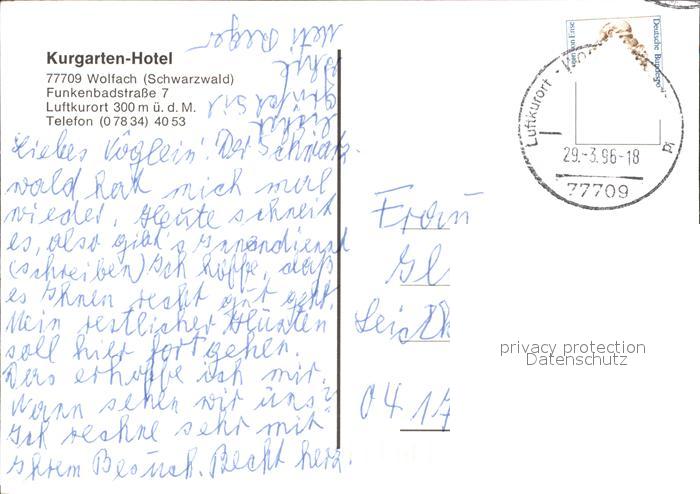 Kurgarten-Hotel
77709 Wolfach (Schwarzwald)
Funkenbadstraße 7
Luftkurort 300 m ü. d. M.
Telefon (0 78 34) 40 53
Liebes Vöglein! Der Schwarz-
wald hat mich mal
wieder. Heute schneit
es, also gibt's Innendienst
(schreiben) Ich hoffe, daß
es Ihnen recht gut geht.
Mein restlicher Husten
soll hier fortgehen.
Das erhoffe ich mir.
Wann sehen wir uns?
Ich rechne sehr mit
Ihrem Besuch. Recht herz-
lichst
grüßt Sie
Ihre
Meti
Deutsche Bundespo
Luftkurort - Wo
29.-3.96-18
77709
Frau
Gl
04 17
privacy protection
Datenschutz